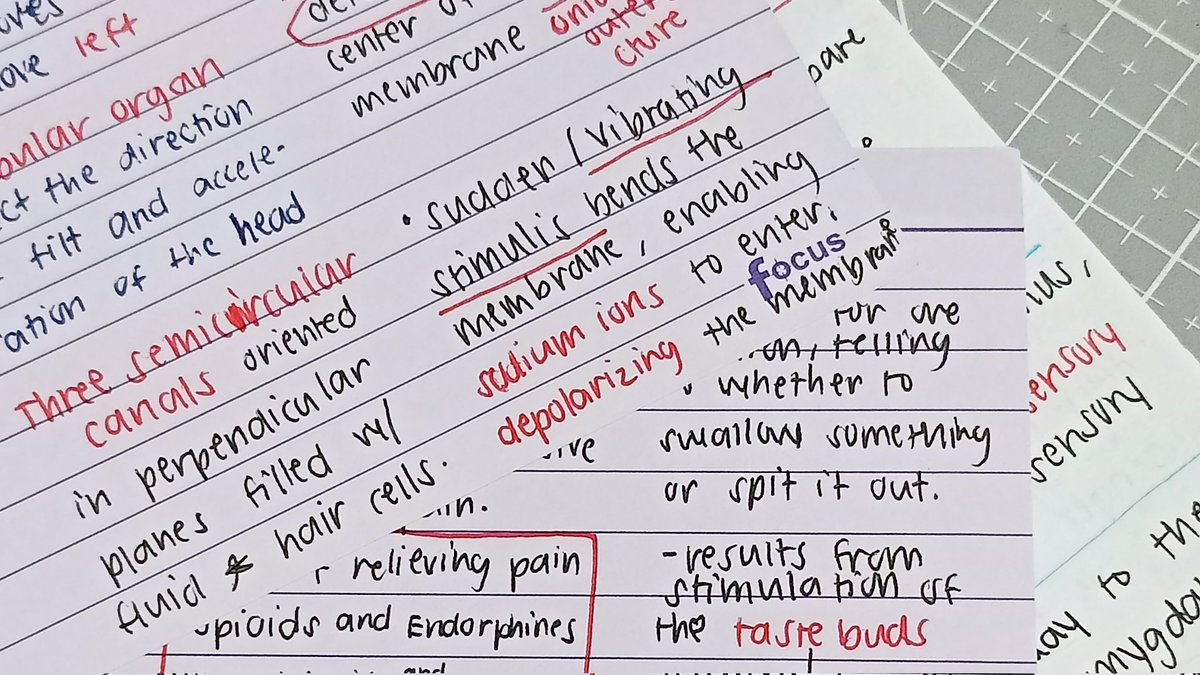 ove left
organ
the direction
tilt and accele-
ation of the head
Three semicircular
canals oriented
in perpendicular
planes filled w/
fluid & hair cells.
center
membrane
outer
cture
• sudden / vibrating
stimulis bends the
membrane, enabling
sodium ions to enter.
depolarizing the membran
focus
are
telling
whether to
swallow something
or spit it out.
- results from
stimulation of
the taste buds
relieving pain
and Endorphines
and
sensory
sensory
to the